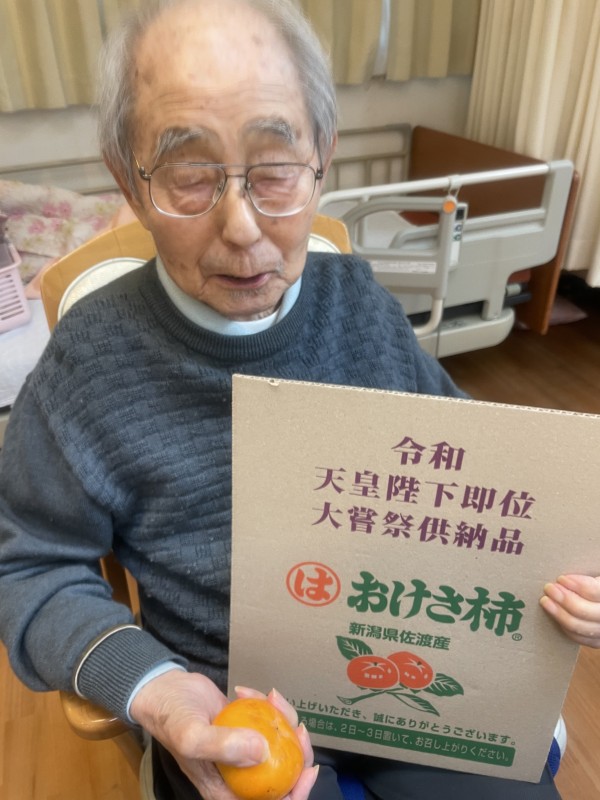 令和
天皇陛下即位
大嘗祭供納品
は おけさ柿®
新潟県佐渡産
い上げいただき、誠にありがとうございます。
る場合は、2日〜3日置いて、お召し上がりください。